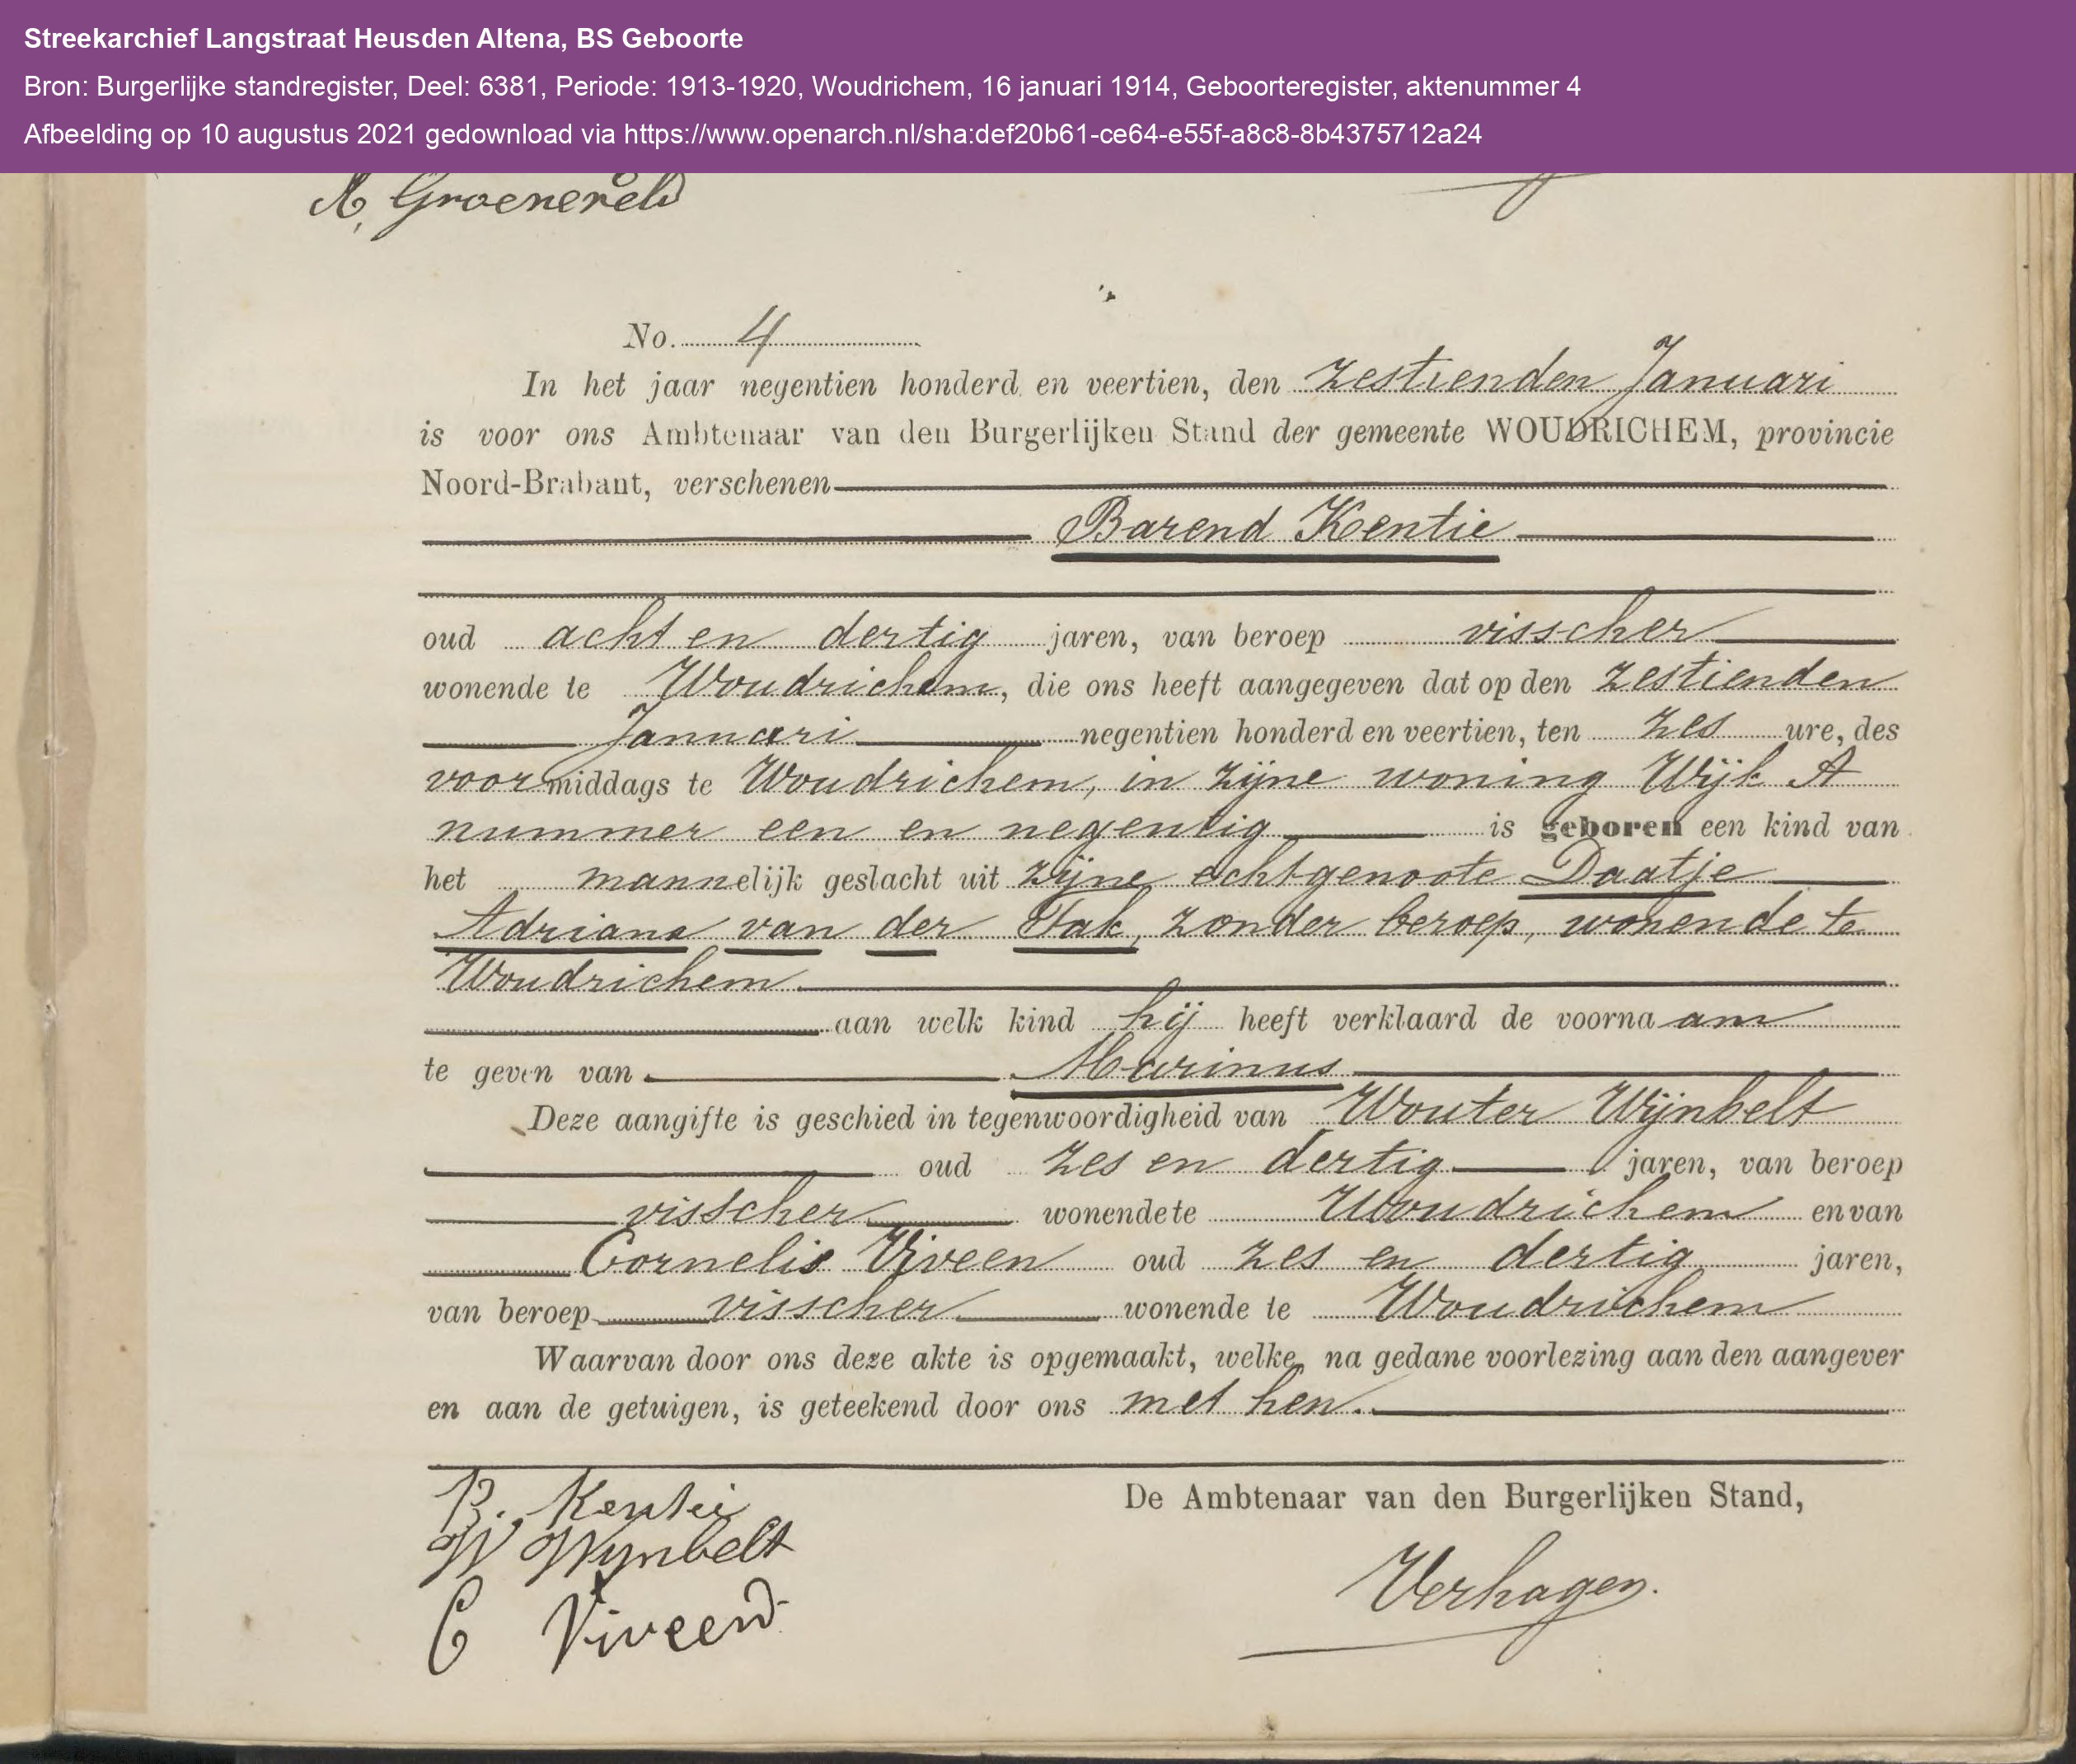 Streekarchief Langstraat Heusden Altena, BS Geboorte
Bron: Burgerlijke standregister, Deel: 6381, Periode: 1913-1920, Woudrichem, 16 januari 1914, Geboorteregister, aktenummer 4
Afbeelding op 10 augustus 2021 gedownload via https://www.openarch.nl/sha:def20b61-ce64-e55f-a8c8-8b4375712a24
A. Groeneveld
No. 4
In het jaar negentien honderd en veertien, den zestienden Januari
is voor ons Ambtenaar van den Burgerlijken Stand der gemeente WOUDRICHEM, provincie
Noord-Brabant, verschenen
Barend Kentie
oud acht en dertig jaren, van beroep visscher
wonende te Woudrichem, die ons heeft aangegeven dat op den zestienden
Januari negentien honderd en veertien, ten zes ure, des
voormiddags te Woudrichem, in zijne woning Wijk A
nummer een en negentig is geboren een kind van
het mannelijk geslacht uit zijne echtgenoote Daatje
Adriana van der Stak, zonder beroep, wonende te
Woudrichem.
aan welk kind hij heeft verklaard de voornaam
te geven van Marinus
Deze aangifte is geschied in tegenwoordigheid van Wouter Wijnbelt
oud zes en dertig jaren, van beroep
visscher wonende te Woudrichem en van
Cornelis Viveen oud zes en dertig jaren,
van beroep visscher wonende te Woudrichem
Waarvan door ons deze akte is opgemaakt, welke, na gedane voorlezing aan den aangever
en aan de getuigen, is geteekend door ons met hen.
De Ambtenaar van den Burgerlijken Stand,
B. Kentie
W Wijnbelt
C Viveen
Verhagen.